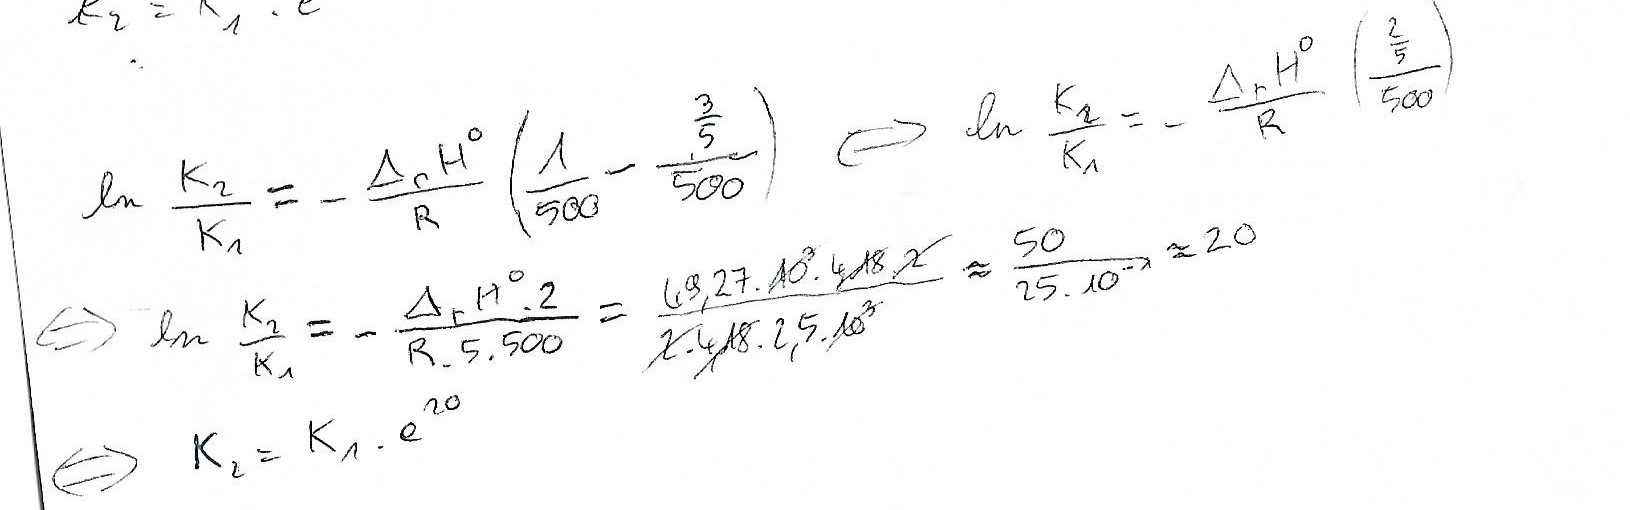 K₂ = K₁ . e
ln K₂/K₁ = - ΔrH°/R (1/500 - (3/5)/500) ⇔ ln K₂/K₁ = - ΔrH°/R ((2/5)/500)
⇔ ln K₂/K₁ = - ΔrH°.2/(R.5.500) = 49,27.10³.4,18.2/(2.4,18.2,5.10³) ≈ 50/(25.10⁻¹) ≈ 20
⇔ K₂ = K₁ . e²⁰